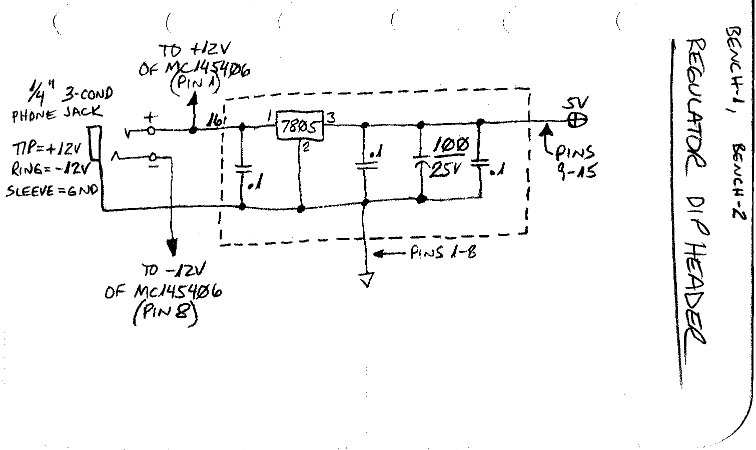 BENCH-1, BENCH-2
REGULATOR DIP HEADER
TO +12V
OF MC1454Ø6
(PIN 1)
1/4" 3-COND
PHONE JACK
TIP=+12V
RING=-12V
SLEEVE=GND
+
-
16
1
7805
3
2
.1
.1
100
25V
.1
5V
PINS
9-15
PINS 1-8
TO -12V
OF MC1454Ø6
(PIN 8)